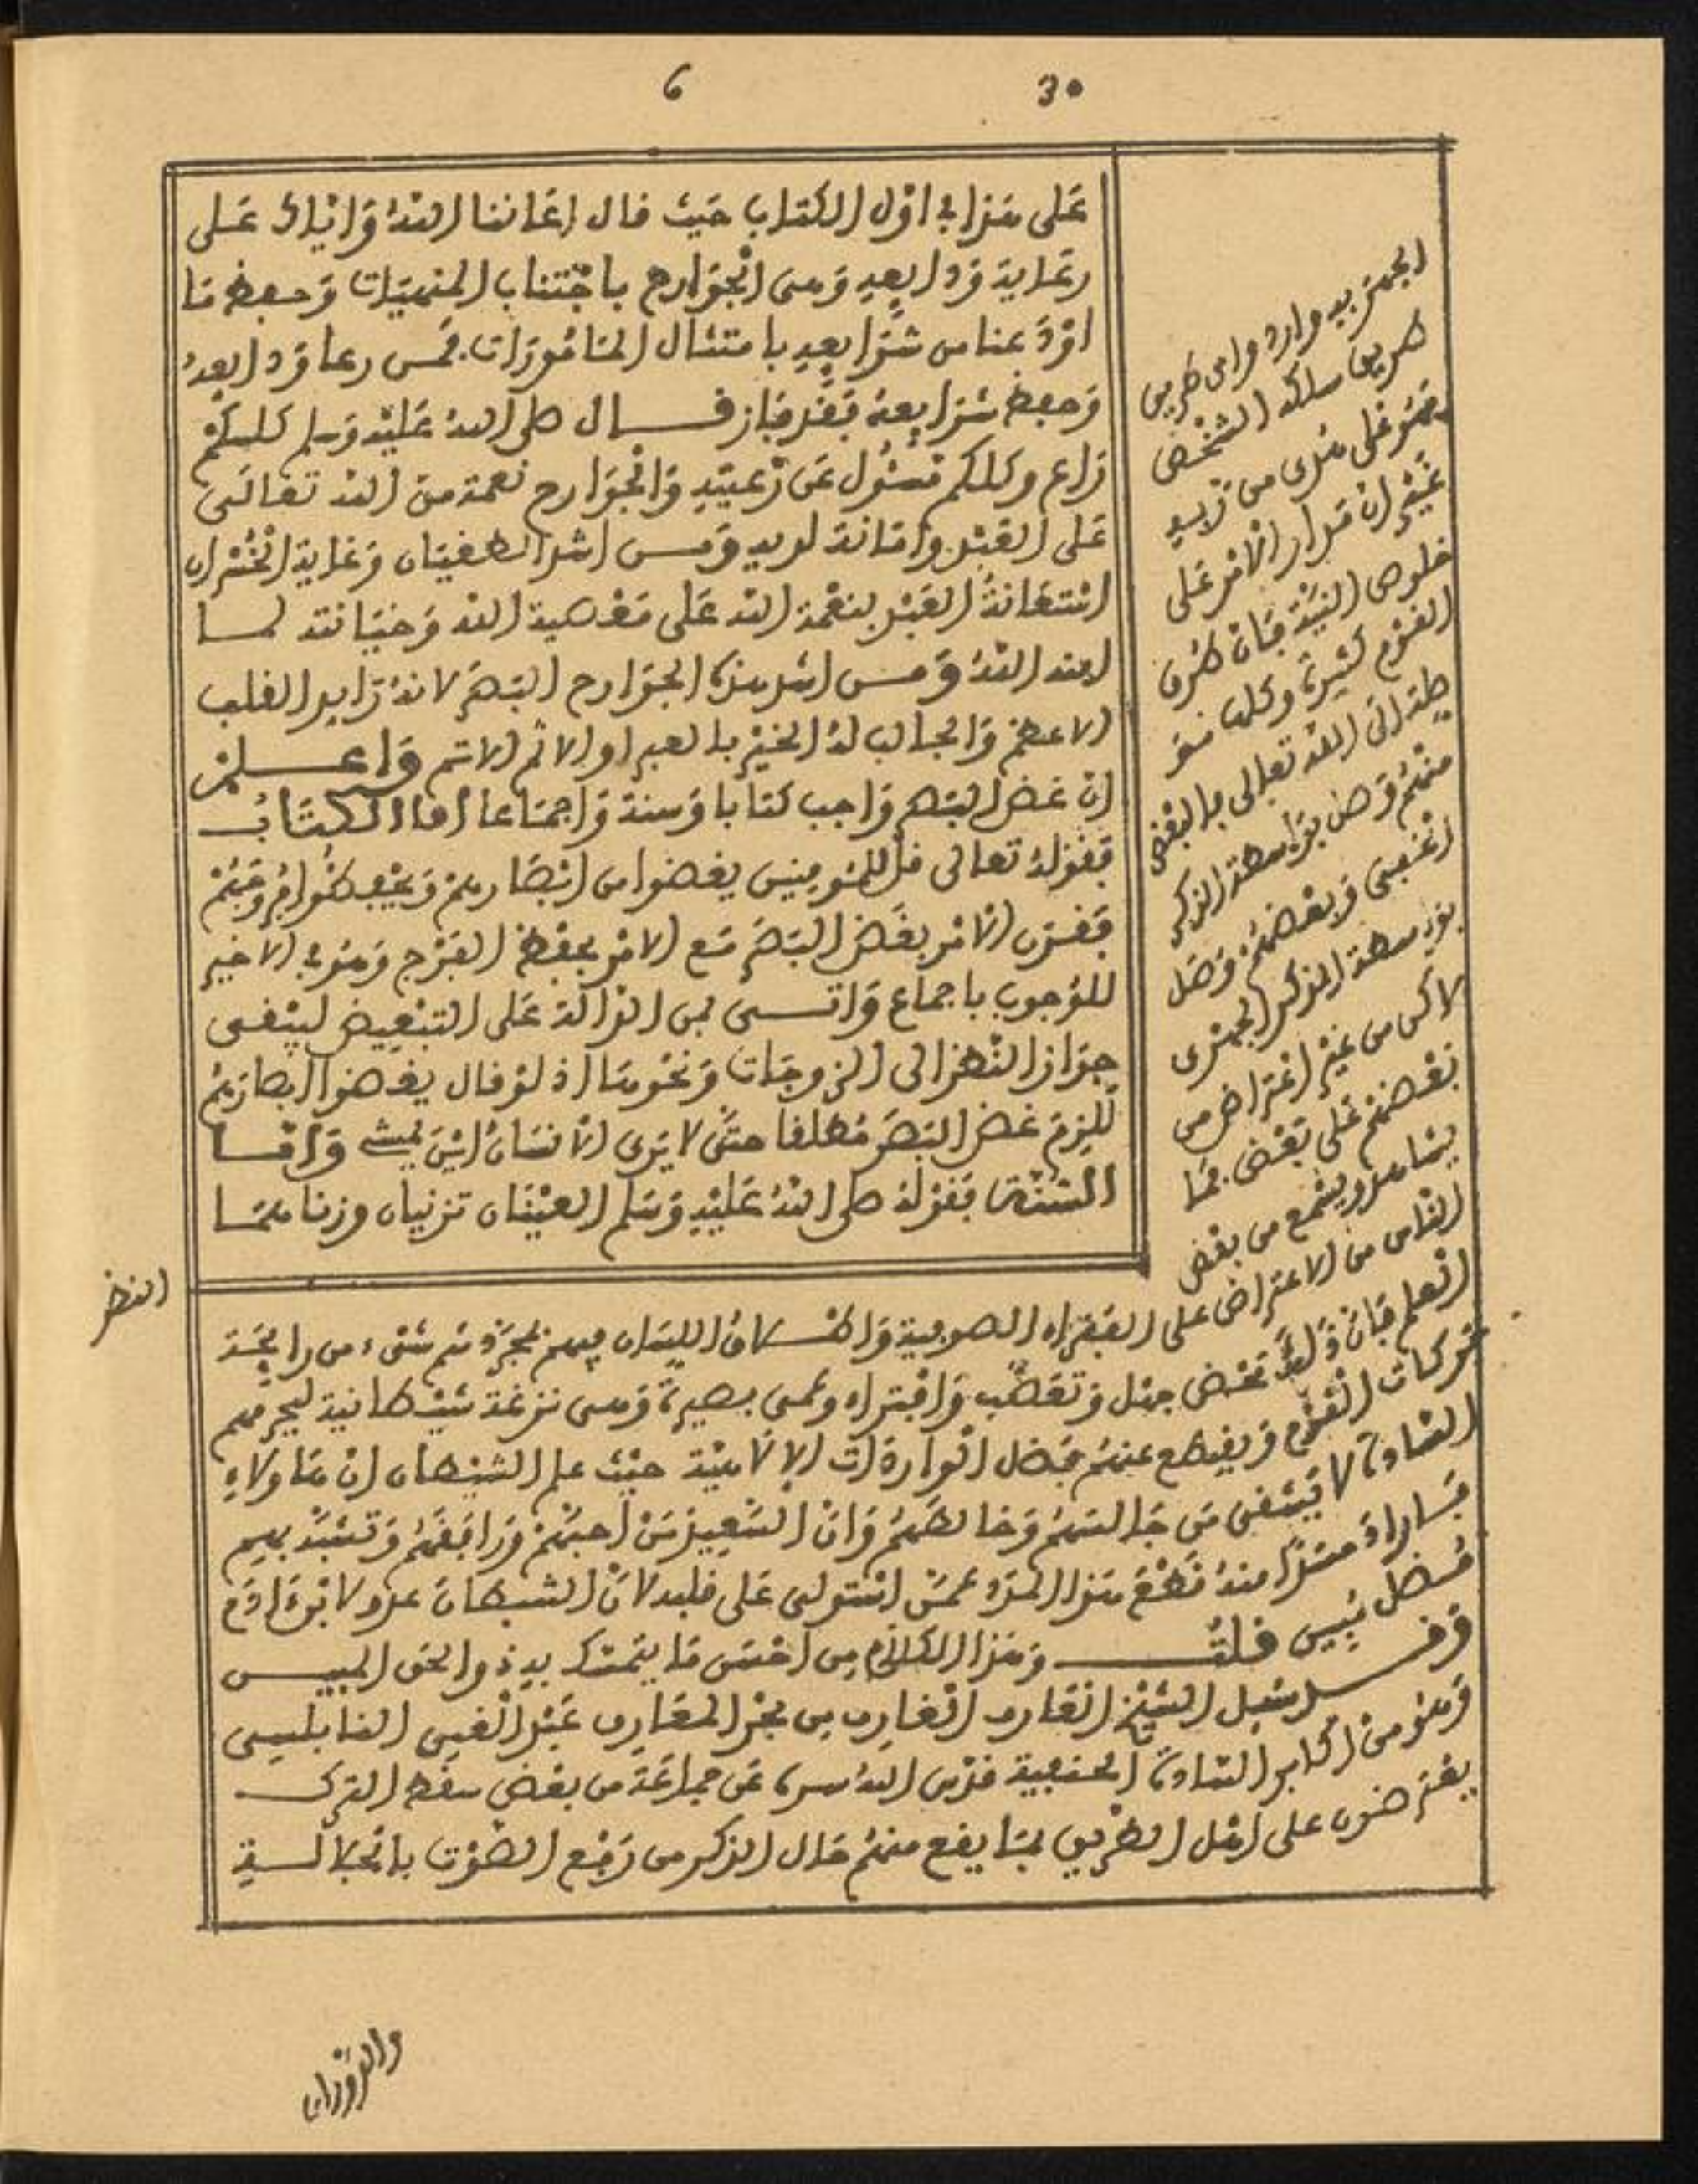 30 6
على هذا في اول الكتاب حيث قال اعاننا الله واياك على
رعاية ودايعه وهي الجوارح باجتناب المنهيات وحفظ ما
اودعنا من شرايعه بامتثال المامورات فمن رعا ودايعه
وحفظ شرايعه فقد فاز قال صلى الله عليه وسلم كلكم
راع وكلكم مسئول عن رعيته والجوارح نعمة من الله تعالى
على العبد وامانة لديه ومن اشد الطغيان وغاية الخسران
استعانة العبد بنعمة الله على معصية الله وخيانته لما
امنه الله ومن اشد هذه الجوارح البصر لانه رايد القلب
الاعظم والجالب له الخير بالعبر او الاثم الاتم واعلم
ان غض البصر واجب كتابا وسنة واجماعا اما الكتاب
فقوله تعالى قل للمومنين يغضوا من ابصارهم ويحفظوا فروجهم
فقرن الامر بغض البصر مع الامر بحفظ الفرج وهو في الاخير
للوجوب باجماع واتى بمن الدالة على التبعيض ليبقى
جواز النظر الى الزوجات ونحوها اذ لو قال يغضوا ابصارهم
للزم غض البصر مطلقا حتى لا يرى الانسان اين يمشي واما
السنة فقوله صلى الله عليه وسلم العينان تزنيان وزناهما
النظر
الجهر فيه وارد واي طريق
طريق سلكه الشخص
فهو على هدى من ربه
غير ان مدار الامر على
خلوص النية فان طرق
القوم كثيرة وكلها مو
صلة الى الله تعالى فالبعض
منهم وصل بواسطة الذكر
الخفي وبعضهم وصل
بواسطة الذكر الجهري
لاكن من غير اعتراض من
بعضهم على بعض فما
يشاهد ويسمع من بعض
الناس من الاعتراض على الفقراء الصوفية واطلاق اللسان فيهم بمجرد شم شيء من رايحة
العلم فان ذلك محض جهل وتعصب وافتراء وعمى بصيرة وهي نزغة شيطانية ليحرمهم
بركات القوم ويقطع عنهم فضل الواردات الالاهية حيث علم الشيطان ان هاولاء
السادة لا يشقى من جالسهم وخالطهم وان السعيد من احبهم ورافقهم وتشبه بهم
فاراد حسدا منه قطع هذا المدد عمن استولى على قلبه لان الشيطان عدو لابن ادم
مضل مبين قلت وهذا الكلام من احسن ما يتمسك به ذو الحق المبين
وقد سئل الشيخ العارف الغارف من بحر المعارف عبد الغني النابلسي
وهو من اكابر السادة الحنفية قدس الله سره عن جماعة من بعض سفط الترك
يعترضون على اهل الطريق بما يقع منهم حال الذكر من رفع الصوت بالجلالة
والدوران